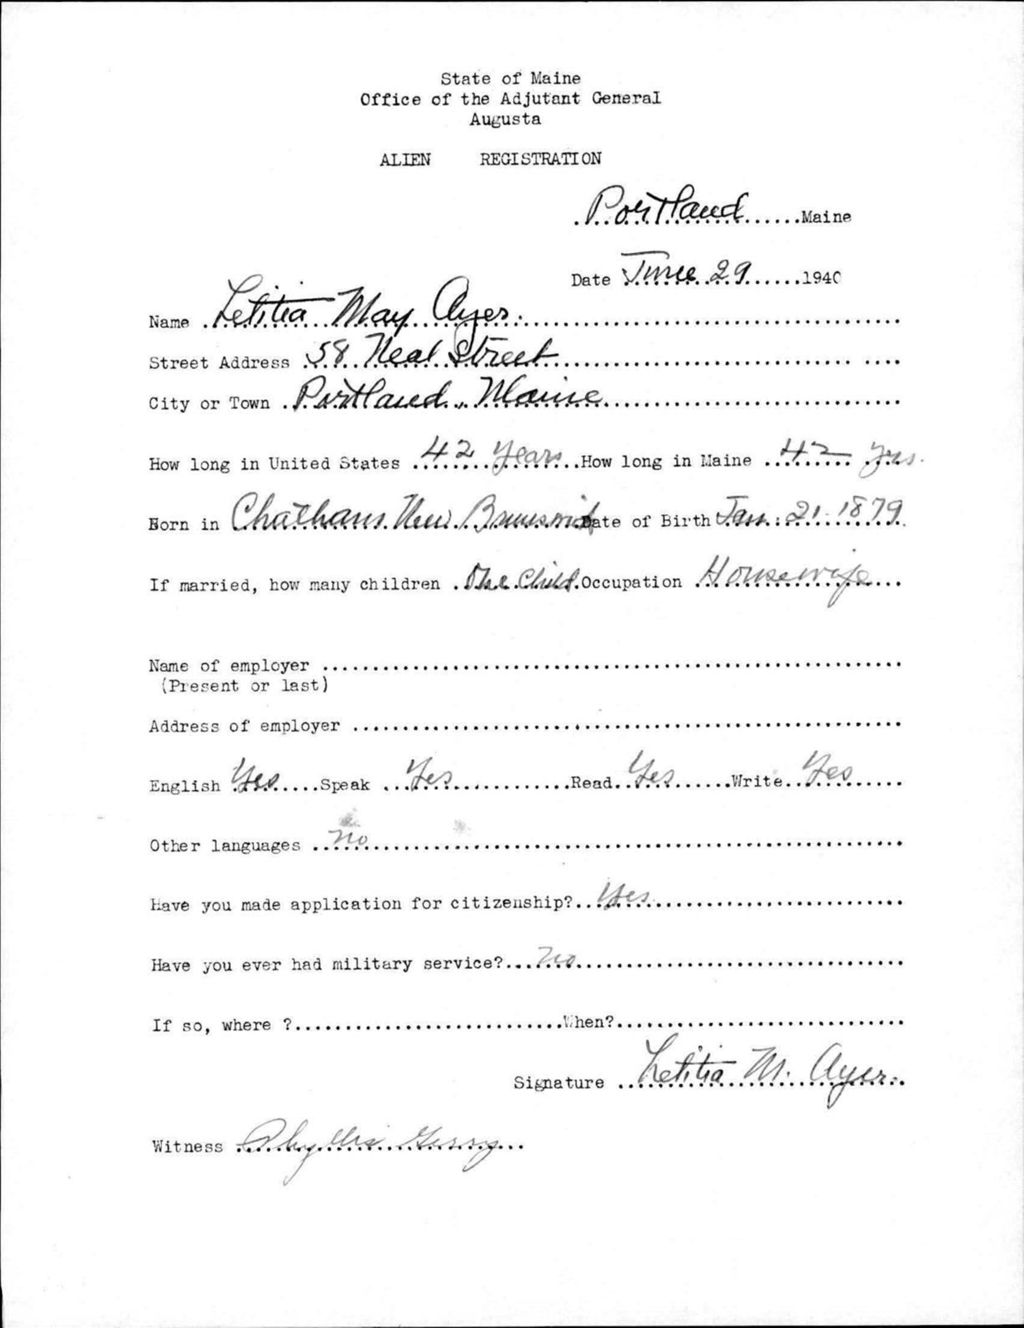 State of Maine
Office of the Adjutant General
Augusta
ALIEN REGISTRATION
Portland Maine
Date June 29 1940
Name Letitia May Ayer.
Street Address 58 Neal Street
City or Town Portland, Maine
How long in United States 42 Years How long in Maine 42 yrs.
Born in Chatham New Brunswick Date of Birth Jan. 21. 1879.
If married, how many children One Child Occupation Housewife
Name of employer
(Present or last)
Address of employer
English Yes Speak Yes Read Yes Write Yes
Other languages no
Have you made application for citizenship? Yes
Have you ever had military service? no
If so, where ? When?
Signature Letitia M. Ayer.
Witness Phyllis Gerry